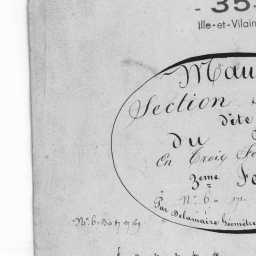 - 35
Ille-et-Vilain
Mau
Section
d'éte
Du
En Trois Fe
3eme Fe
N° 6
Par Delamaire Géomètre